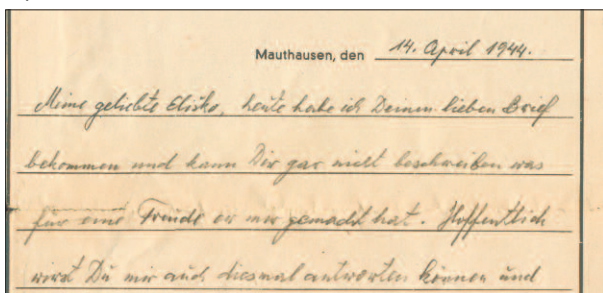 Mauthausen, den 14. April 1944.
Meine geliebte Eliško, heute habe ich Deinen lieben Brief
bekommen und kann Dir gar nicht beschreiben was
für eine Freude er mir gemacht hat. Hoffentlich
wirst Du mir auch diesmal antworten können und